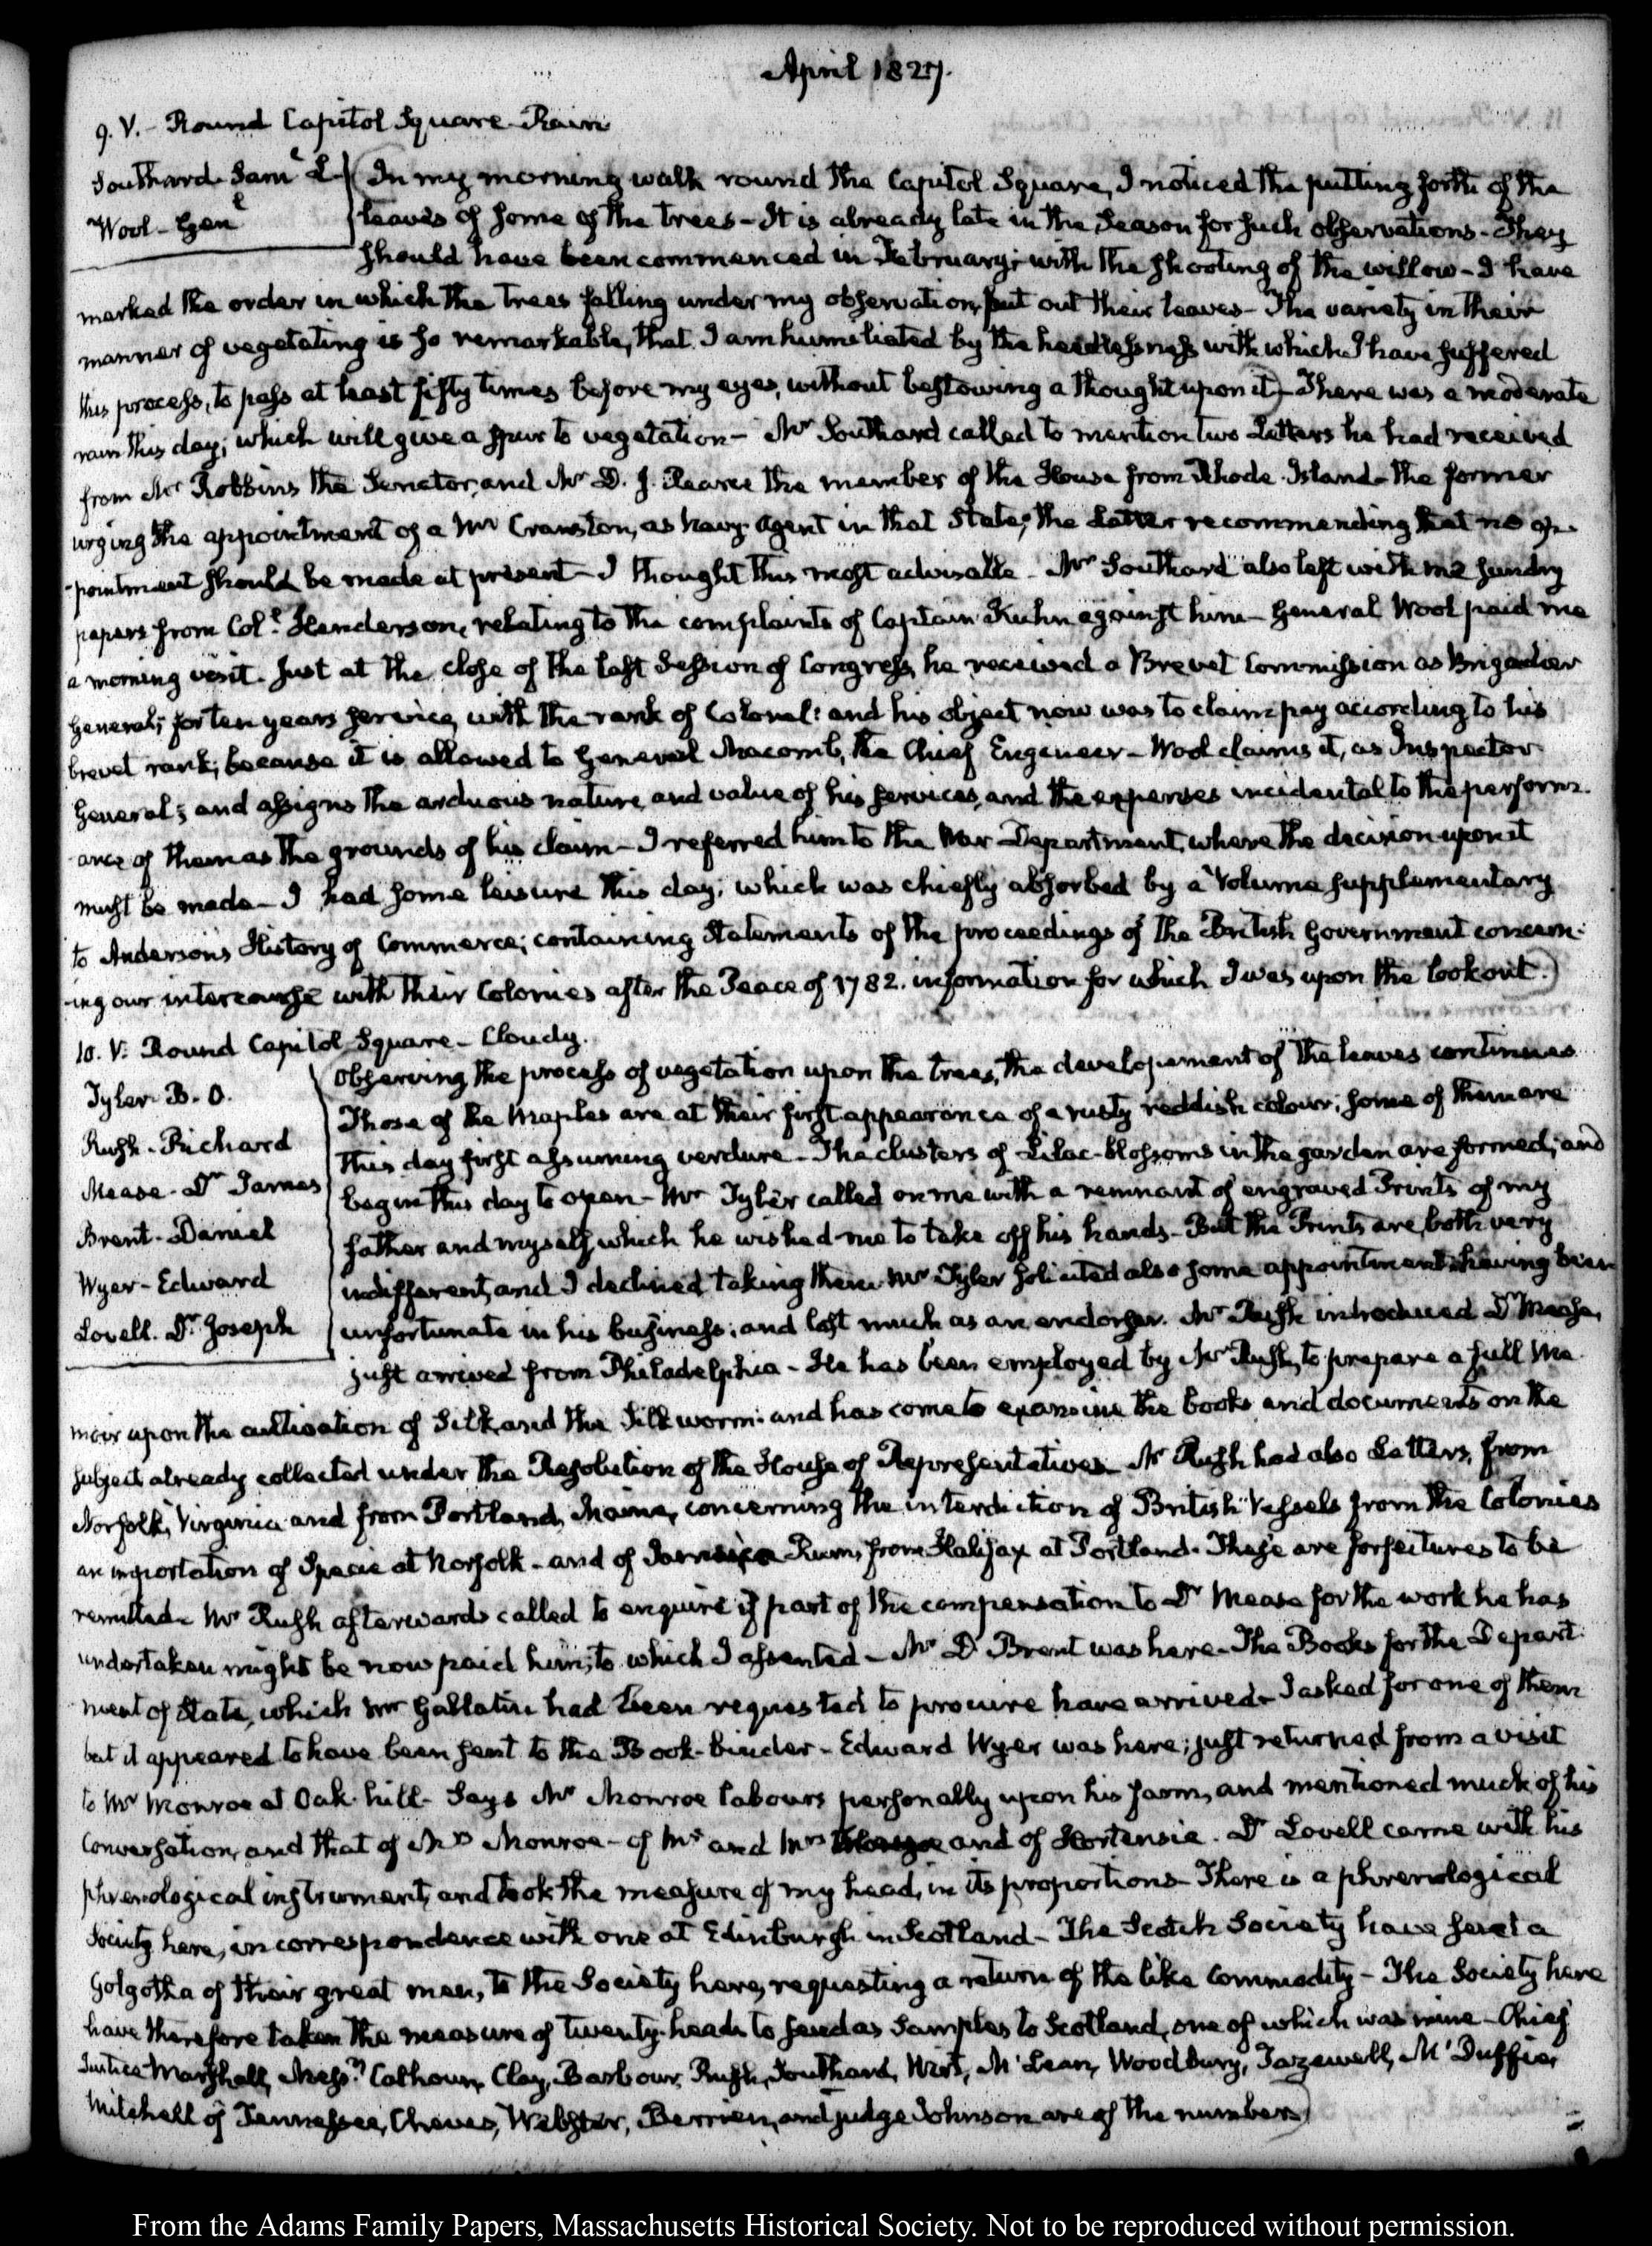 April 1827.
9. V. – Round Capitol Square – Rain
Southard. Saml. L.
Wool – Genl.
In my morning walk round the Capitol Square, I noticed the putting forth of the
leaves of some of the trees – It is already late in the Season for such observations – They
should have been commenced in February; with the shooting of the willow – I have
marked the order in which the trees falling under my observation, put out their leaves – The variety in their
manner of vegetating is so remarkable, that I am humiliated by the heedlessness with which I have suffered
this process, to pass at least fifty times before my eyes, without bestowing a thought upon it) – There was a moderate
rain this day; which will give a spur to vegetation – Mr Southard called to mention two Letters he had received
from Mr Robbins the Senator, and Mr D. J. Pearce the member of the House from Rhode-Island – the former
urging the appointment of a Mr Cranston, as Navy Agent in that State; the Latter recommending that no ap-
-pointment should be made at present – I thought this most advisable – Mr Southard also left with me sundry
papers from Coll. Henderson, relating to the complaints of Captain Kuhn against him – General Wool paid me
a morning visit. Just at the close of the last Session of Congress, he received a Brevet Commission as Brigadier
General; for ten years service, with the rank of Colonel: and his object now was to claim pay according to his
brevet rank; because it is allowed to General Macomb, the Chief Engineer – Wool claims it, as Inspector
General; and assigns the arduous nature, and value of his services, and the expenses incidental to the perform-
-ance of them as the grounds of his claim – I referred him to the War Department, where the decision upon it
must be made – I had some leisure this day; which was chiefly absorbed by a Volume supplementary
to Anderson's History of Commerce; containing Statements of the proceedings of the British Government concern-
-ing our intercourse with their Colonies after the Peace of 1782. information for which I was upon the lookout.)
10. V: Round Capitol Square – Cloudy.
Tyler. B. O.
Rush – Richard
Mease – Dr James
Brent – Daniel
Wyer – Edward
Lovell. Dr. Joseph
Observing the process of vegetation upon the trees, the developement of the leaves continues
Those of the Maples are at their first appearance of a rusty reddish colour; some of them are
this day first assuming verdure – The clusters of Lilac-blossoms in the garden are formed; and
begin this day to open – Mr Tyler called on me with a remnant of engraved Prints of my
father and myself, which he wished me to take off his hands – But the Prints are both very
indifferent, and I declined taking them. Mr Tyler solicited also some appointment: having been
unfortunate in his business; and lost much as an endorser. Mr Rush introduced Dr Mease,
just arrived from Philadelphia – He has been employed by Mr Rush, to prepare a full Me-
moir upon the cultivation of Silk, and the Silk worm: and has come to examine the books and documents on the
subject already collected under the Resolution of the House of Representatives – Mr Rush had also Letters, from
Norfolk, Virginia and from Portland, Maine, concerning the interdiction of British Vessels from the Colonies
an importation of Specie at Norfolk – and of Jamaica Rum, from Halifax at Portland. These are forfeitures to be
remitted – Mr Rush afterwards called to enquire if part of the compensation to Dr Mease for the work he has
undertaken might be now paid him; to which I assented – Mr D Brent was here – The Books for the Depart-
ment of State, which Mr Gallatin had been requested to procure have arrived – I asked for one of them
but it appeared to have been sent to the Book-binder – Edward Wyer was here; just returned from a visit
to Mr Monroe at Oak-hill – Says Mr Monroe labours personally upon his farm, and mentioned much of his
Conversation, and that of Mrs Monroe – of Mr and Mrs and of Hortensia. Dr Lovell came with his
phrenological instrument, and took the measure of my head, in its proportions – There is a phrenological
Society here, in correspondence with one at Edinburgh in Scotland – The Scotch Society have sent a
Golgotha of their great men, to the Society here, requesting a return of the like Commodity – The Society here
have therefore taken the measure of twenty heads to send as Samples to Scotland, one of which was mine – Chief
Justice Marshall, Messrs Calhoun, Clay, Barbour, Rush, Southard, Wirt, McLean, Woodbury, Tazewell, McDuffie,
Mitchell of Tennessee, Cheves, Webster, Berrien, and judge Johnson are of the number)
From the Adams Family Papers, Massachusetts Historical Society. Not to be reproduced without permission.